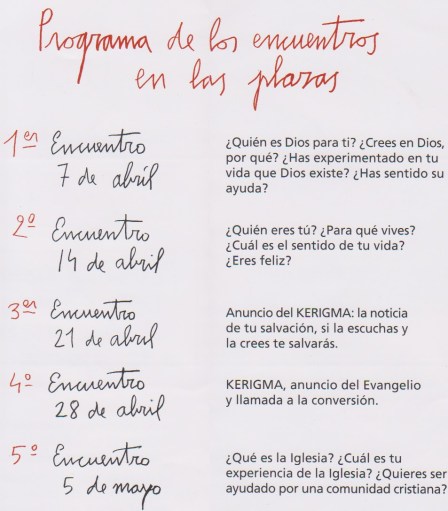 Programa de los encuentros
en las plazas
1er Encuentro
7 de abril
¿Quién es Dios para ti? ¿Crees en Dios,
por qué? ¿Has experimentado en tu
vida que Dios existe? ¿Has sentido su
ayuda?
2º Encuentro
14 de abril
¿Quién eres tú? ¿Para qué vives?
¿Cuál es el sentido de tu vida?
¿Eres feliz?
3er Encuentro
21 de abril
Anuncio del KERIGMA: la noticia
de tu salvación, si la escuchas y
la crees te salvarás.
4º Encuentro
28 de abril
KERIGMA, anuncio del Evangelio
y llamada a la conversión.
5º Encuentro
5 de mayo
¿Qué es la Iglesia? ¿Cuál es tu
experiencia de la Iglesia? ¿Quieres ser
ayudado por una comunidad cristiana?